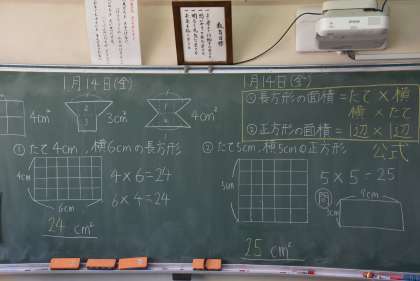 1月14日(金)
4cm²
1
2
3
3cm²
4cm²
① たて4cm, 横6cmの長方形
4cm
6cm
4×6=24
6×4=24
24 cm²
1月14日(金)
①長方形の面積=たて×横
横×たて
②正方形の面積=1辺×1辺
公式
② たて5cm, 横5cmの正方形
5cm
5×5=25
25 cm²
問
7cm
3cm